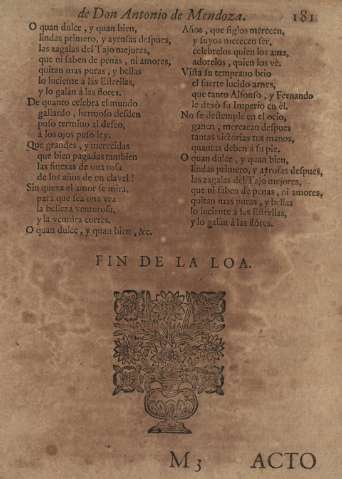 de Don Antonio de Mendoza. 181
O quan dulce, y quan bien,
lindas primero, y ayrosas despues,
las zagalas del Tajo mejores,
que ni saben de penas, ni amores,
quitan mas puras, y bellas
lo luciente à las Estrellas,
y lo galan à las flores.
De quanto celebra el mundo
gallardo, hermoso desden
puso termino al deseo,
à los ojos puso ley.
Que grandes, y merecidas
que bien pagadas tambien
las finezas de una rosa
de los años de un clavel!
Sin quexa el amor se mira,
para que sea una vez
la belleza venturosa,
y la ventura cortès.
O quan dulce, y quan bien, &c.
Años, que siglos merecen,
y suyos merecen ser,
celebrelos quien los ama,
adorelos, quien los vè.
Viña su temprano brio
el fuerte lucido arnes,
que tanto Alfonso, y Fernando
le dexò su Imperio en èl.
No se destemple en el ocio,
ganen, merezcan despues
tantas victorias sus manos,
quantas deben à su pie.
O quan dulce, y quan bien,
lindas primero, y ayrosas despues,
las zagalas del Tajo mejores,
que ni saben de penas, ni amores,
quitan mas puras, y bellas
lo luciente à las Estrellas,
y lo galan à las flores.
FIN DE LA LOA.
M 3 ACTO